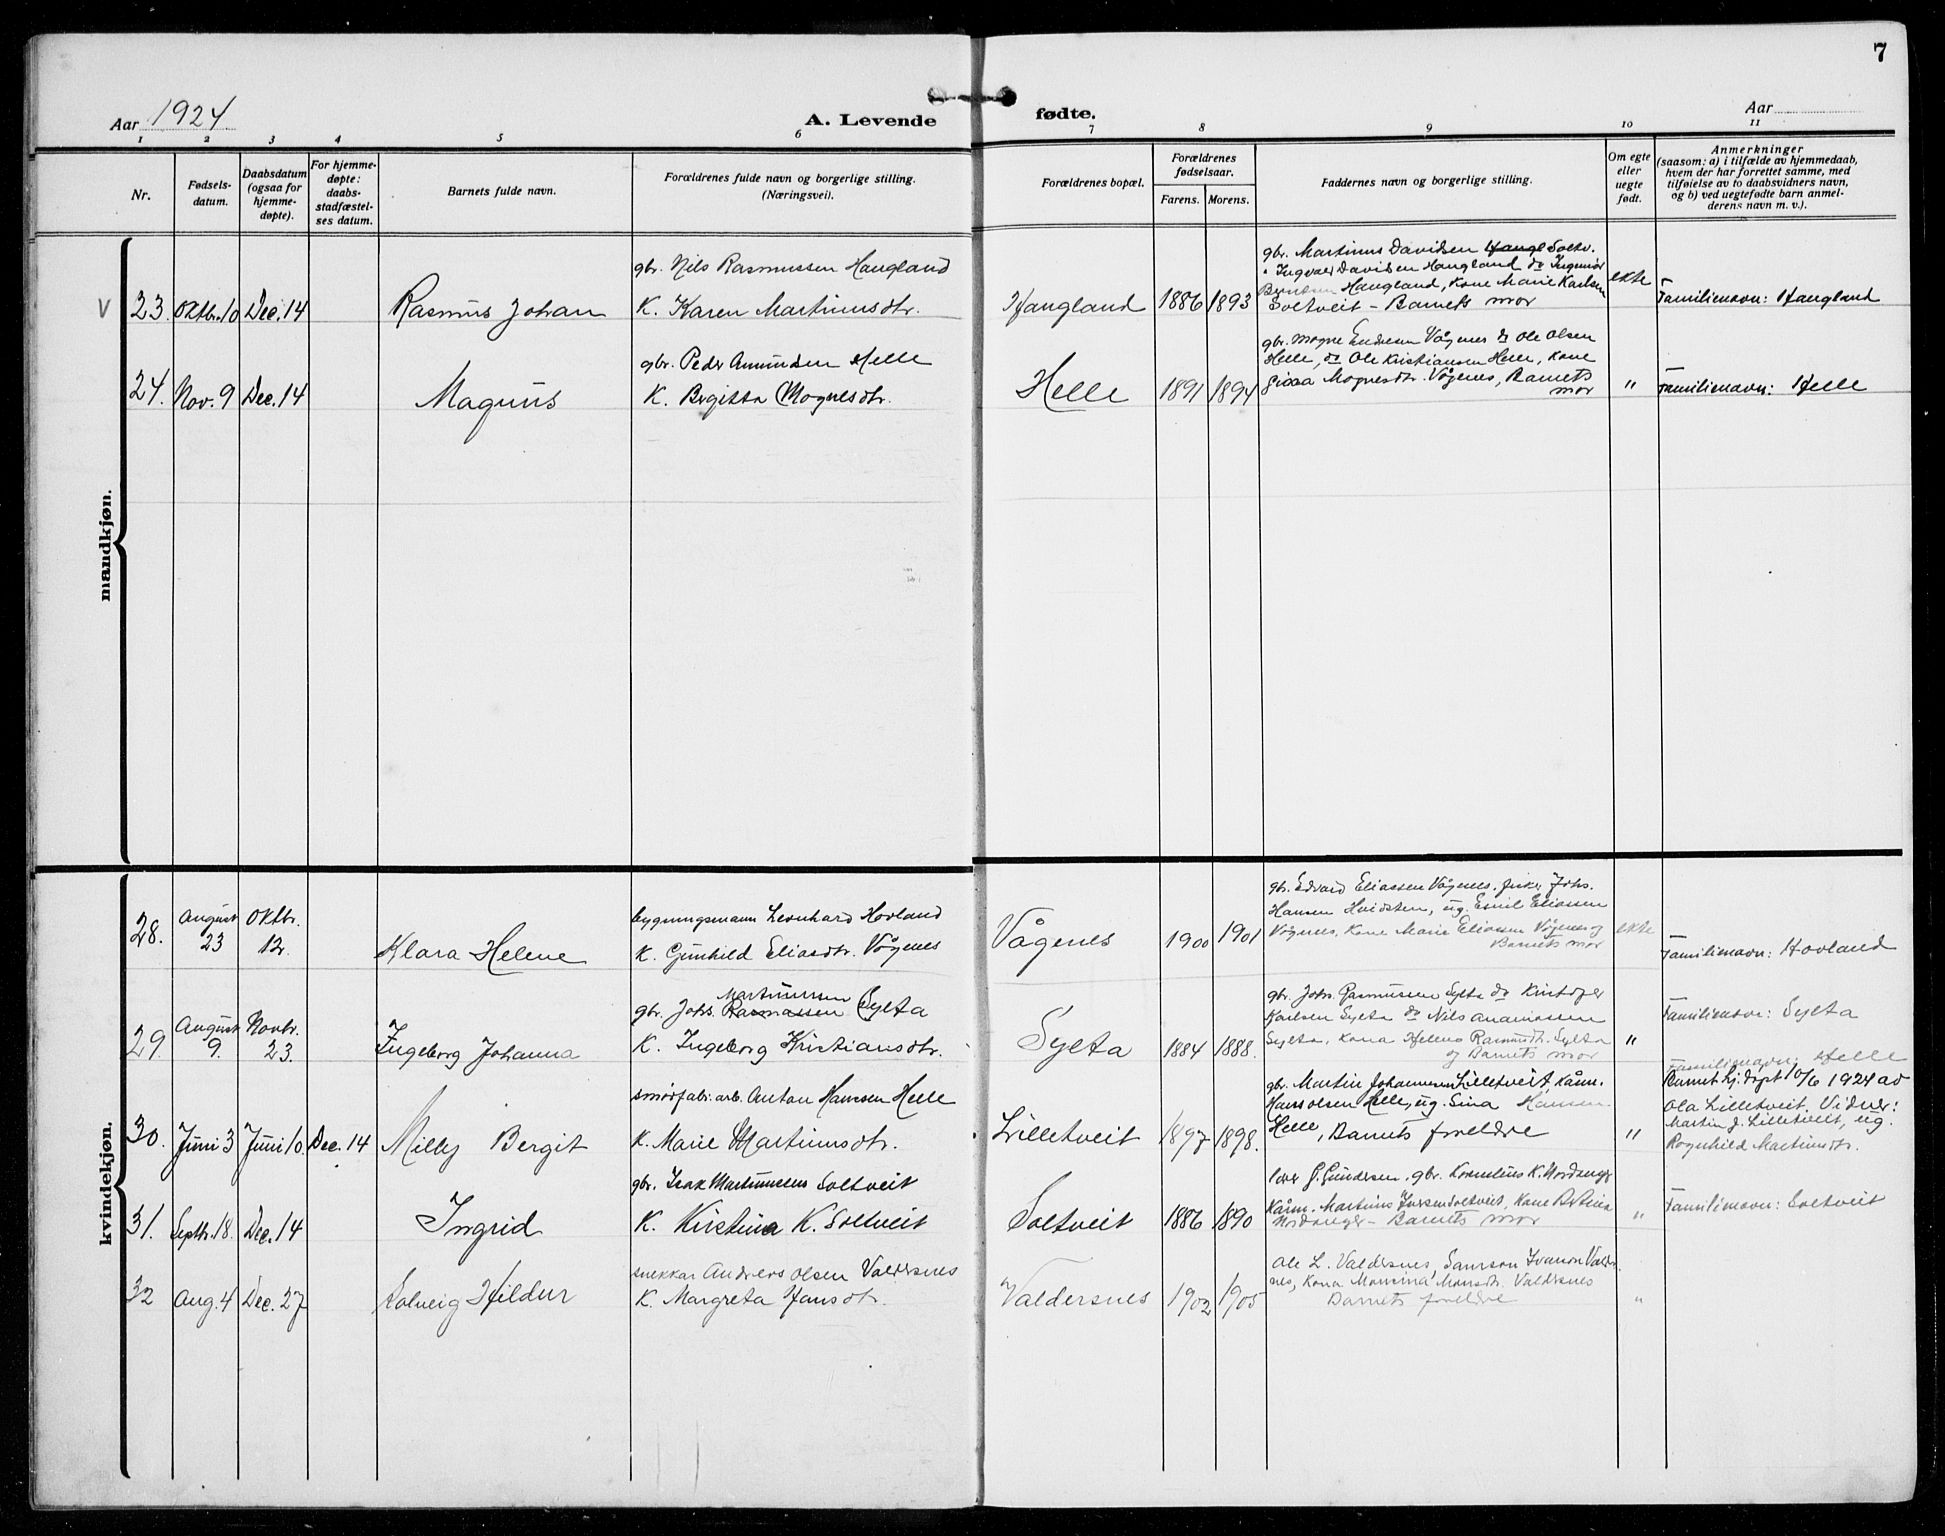 7
Aar 1924
A. Levende
fødte.
Aar
1 2 3 4 5 6 7 8 9 10 11
Nr.
Fødsels-
datum.
Daabsdatum
(ogsaa for
hjemme-
døpte).
For hjemme-
døpte:
daabs-
stadfæstel-
ses datum.
Barnets fulde navn.
Forældrenes fulde navn og borgerlige stilling.
(Næringsvei).
Forældrenes bopæl.
Forældrenes
fødselsaar.
Farens. Morens.
Faddernes navn og borgerlige stilling.
Om egte
eller
uegte
født.
Anmerkninger
(saasom: a) i tilfælde av hjemmedaab,
hvem der har forrettet samme, med
tilføielse av to daabsvidners navn,
og b) ved uegtefødte barn anmel-
derens navn m. v.).
mandkjøn.
V 23. Oktbr. 10 Dec. 14
Rasmus Johan
gbr. Nils Rasmussen Haugland
K. Karen Martinusdtr.
Haugland 1886 1893
gbr. Martinus Davidsen Haugl Soltv.
Ingvald Davidsen Haugland do Ingemår
Haugland, Kone Marie Karlsen
Soltveit - Barnets mor
ekte
Familienavn: Haugland
24. Nov. 9 Dec. 14
Magnus
gbr. Peder Amundsen Helle
K. Bergitta Mognesdtr.
Helle 1891 1894
gbr. Mogne Endresen Vågenes do Ole Olsen
Helle, do Ole Kristiansen Helle, Kone
Mognesdtr. Vågenes, Barnets
mor
"
Familienavn: Helle
kvindekjøn.
28. August 23 Oktbr. 12.
Klara Helene
bygningsmann Leonhard Hovland
K. Gunhild Eliasdtr. Vågenes
Vågenes 1900 1901
gbr. Edvard Eliassen Vågenes, fisker Johs.
Hansen Hvidsten, ug. Emil Eliassen
Vågenes, Kone Marie Eliasen Vågenes og
Barnets mor
ekte
Familienavn: Hovland
29. August 9. Novbr. 23.
Ingeborg Johanna
Martinussen
gbr. Johs. Rasmussen Sylta
K. Ingeborg Kristiansdtr.
Sylta 1884 1888.
gbr. Johs. Rasmussen Sylta do Kristofer
Karlsen Sylta do Nils Ananiassen
Sylta, Kona Helena Rasmusdtr. Sylta
og Barnets mor
"
Familienavn: Sylta
30. Juni 3 Juni 10. Dec. 14
Milly Bergit
smørfabr. arb. Anton Hansen Helle
K. Marie Martinusdtr.
Lilletveit 1897 1898.
gbr. Martin Johannesen Lilletveit, kårm.
Hans Olsen Helle, ug. Sina Hansen
Helle, Barnets foreldre
"
Familienavn: Helle
Barnet hj. døpt 10/6 1924 av
Ola Lilletveit. Vidner:
Martin J. Lilletveit, ug.
Rognhild Martinsdtr.
31. Septbr. 18. Dec. 14
Ingrid
gbr. Isak Martinussen Soltveit
K. Kirstina K. Soltveit
Soltveit 1886 1890
lærer G. Gundersen, gbr. Kornelius K. Nordanger
Kårm. Martinus Iversen Soltveit, Kone Bertina
Nordanger - Barnets mor
"
Familienavn: Soltveit
32 Aug. 4 Dec. 27
Solveig Hildur
snekker Anders Olsen Valdersnes
K. Margreta Jansdtr.
Valdersnes 1902 1905
Ole L. Valdersnes, Samson Ivanson Valders
nes, Kona Monsina Monsdtr. Valdersnes
Barnets foreldre
"